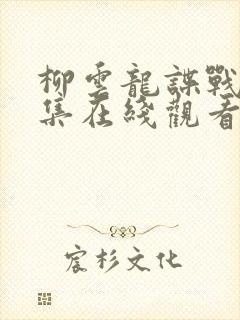 柳雲龍諜戰
集在綫觀看
宸杉文化